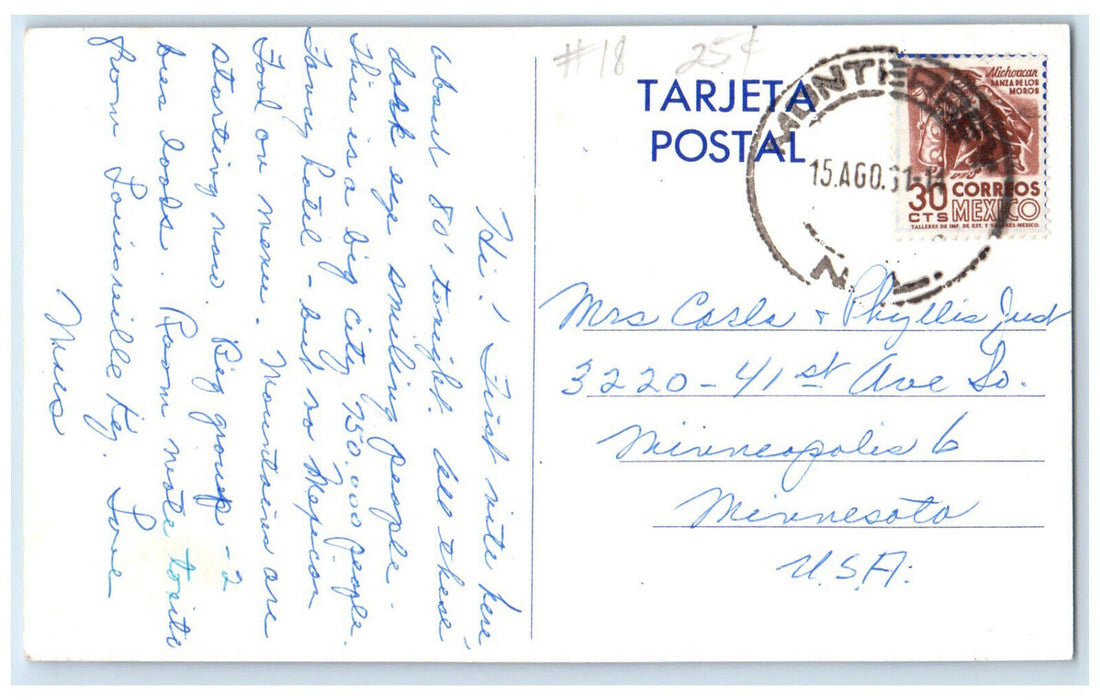 #18 25¢
TARJETA
POSTAL
MONTERREY
15.AGO.61-
N. L.
Michoacan
DANZA DE LOS
MOROS
30 CTS
CORREOS
MEXICO
TALLERES DE IMP. DE EST. Y VALORES-MEXICO.
Hi! First nite here
about 80° tonight. All these
dark eye smiling people.
This is a big city 750.000 people.
Fancy hotel - but no Mexican
Food on menu. Mountains are
starting now. Big group - 2
bus loads. Room mate tonite
from Louisville Ky. Love
Mrs Carla + Phyllis Just
3220-41st Ave So.
Minneapolis 6
Minnesota
U.S.A.